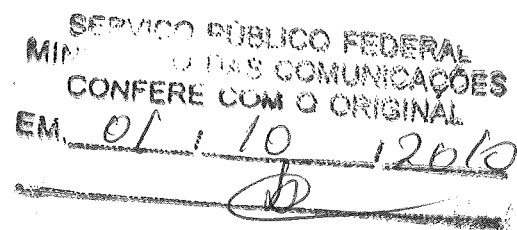 SERVIÇO PÚBLICO FEDERAL
DAS COMUNICAÇÕES
CONFERE COM O ORIGINAL
EM, 01 / 10 / 2010